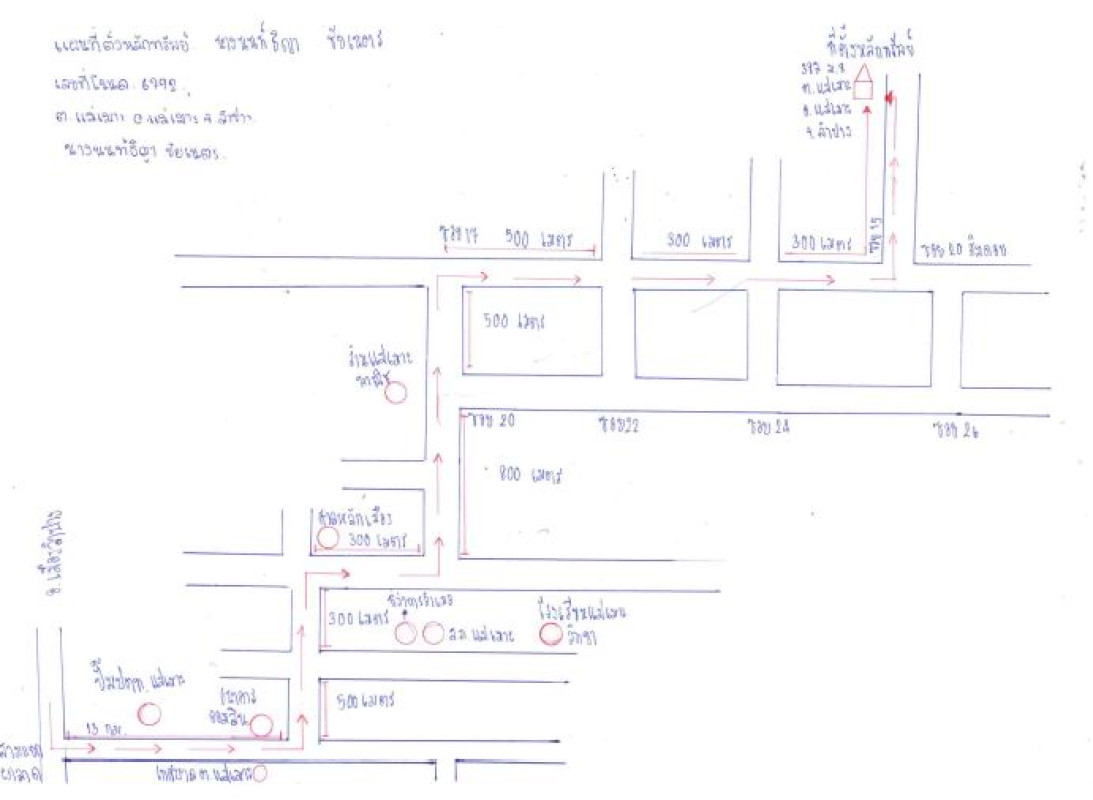 แผนที่ตั้งหลักทรัพย์ นางนนท์ธิญา ชัยเนตร
เลขที่โฉนด 6792
ต. แม่เมาะ อ แม่เมาะ จ ลำปาง
นางนนท์ธิญา ชัยเนตร
ที่ตั้งหลักทรัพย์
397 ม.8
ต. แม่เมาะ
อ. แม่เมาะ
จ. ลำปาง
ซอย 17 500 เมตร
300 เมตร
300 เมตร
ซอย 15
ซอย 20
500 เมตร
ร้านแม่เมาะ
ซอย 20
ซอย 22
ซอย 24
ซอย 26
800 เมตร
ศาลหลักเมือง
300 เมตร
อ. เมืองลำปาง
300 เมตร
ที่ว่าการอำเภอ
สภ แม่เมาะ
โรงเรียนแม่เมาะ
วิทยา
ปั๊มปตท. แม่เมาะ
ธนาคาร
ออมสิน
500 เมตร
13 กม.
เทศบาล ต. แม่เมาะ